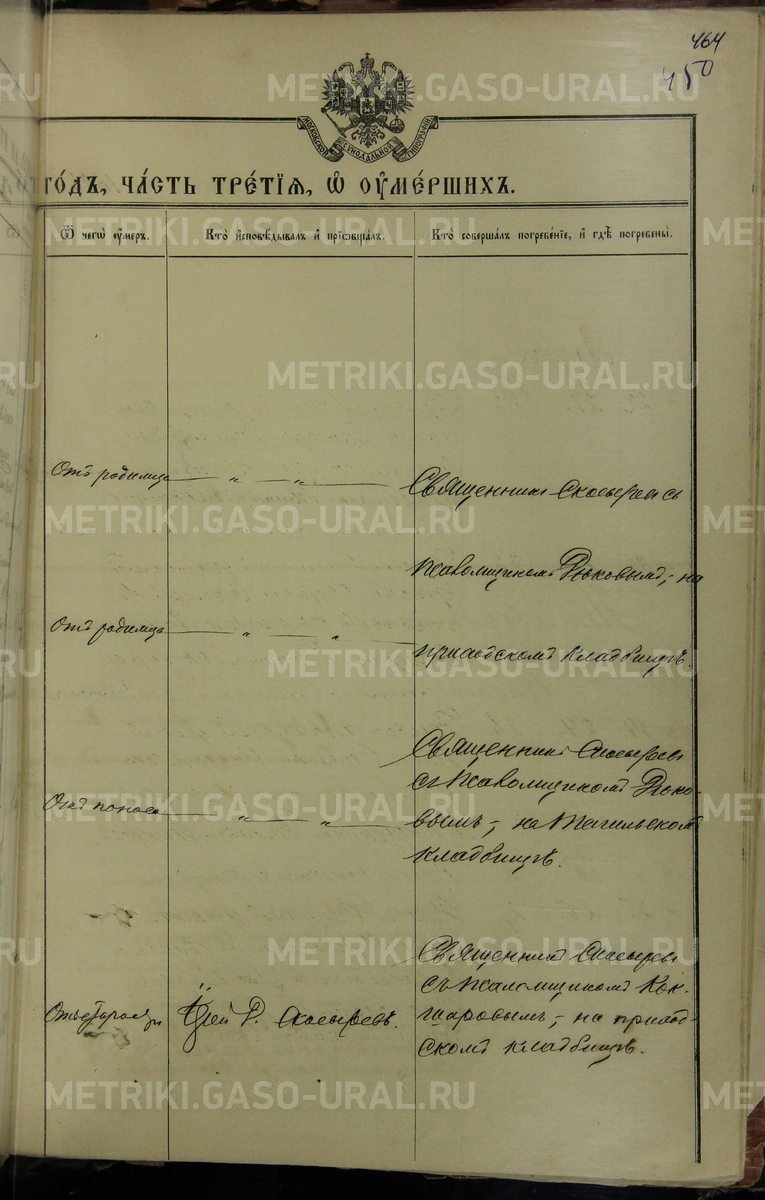 464
450
МОСКОВСКОЙ СѴНОДАЛЬНОЙ ТИПОГРАФІИ
го́дъ, ча́сть тре́тїѧ, ѡ҆ оу҆ме́ршихъ.
Ѿ чегѡ̀ оу҆́меръ.
Кто̀ и҆сповѣ́дывалъ и҆ прїѡбща́лъ.
Кто̀ соверша́лъ погребе́нїе, и҆ гдѣ̀ погребены̀.
Отъ родимца — „ — „ —
Священникъ Скосыревъ съ
псаломщикомъ Рюковымъ, на
приходскомъ кладбищѣ.
Отъ родимца — „ — „ —
Отъ поноса — „ — „ —
Священникъ Скосыревъ
съ псаломщикомъ Рюко-
вымъ, на Тагильскомъ
кладбищѣ.
Отъ старости
Іерей Скосыревъ.
Священникъ Скосыревъ
съ псаломщикомъ Кок-
шаровымъ, на приход-
скомъ кладбищѣ.
METRIKI.GASO-URAL.RU